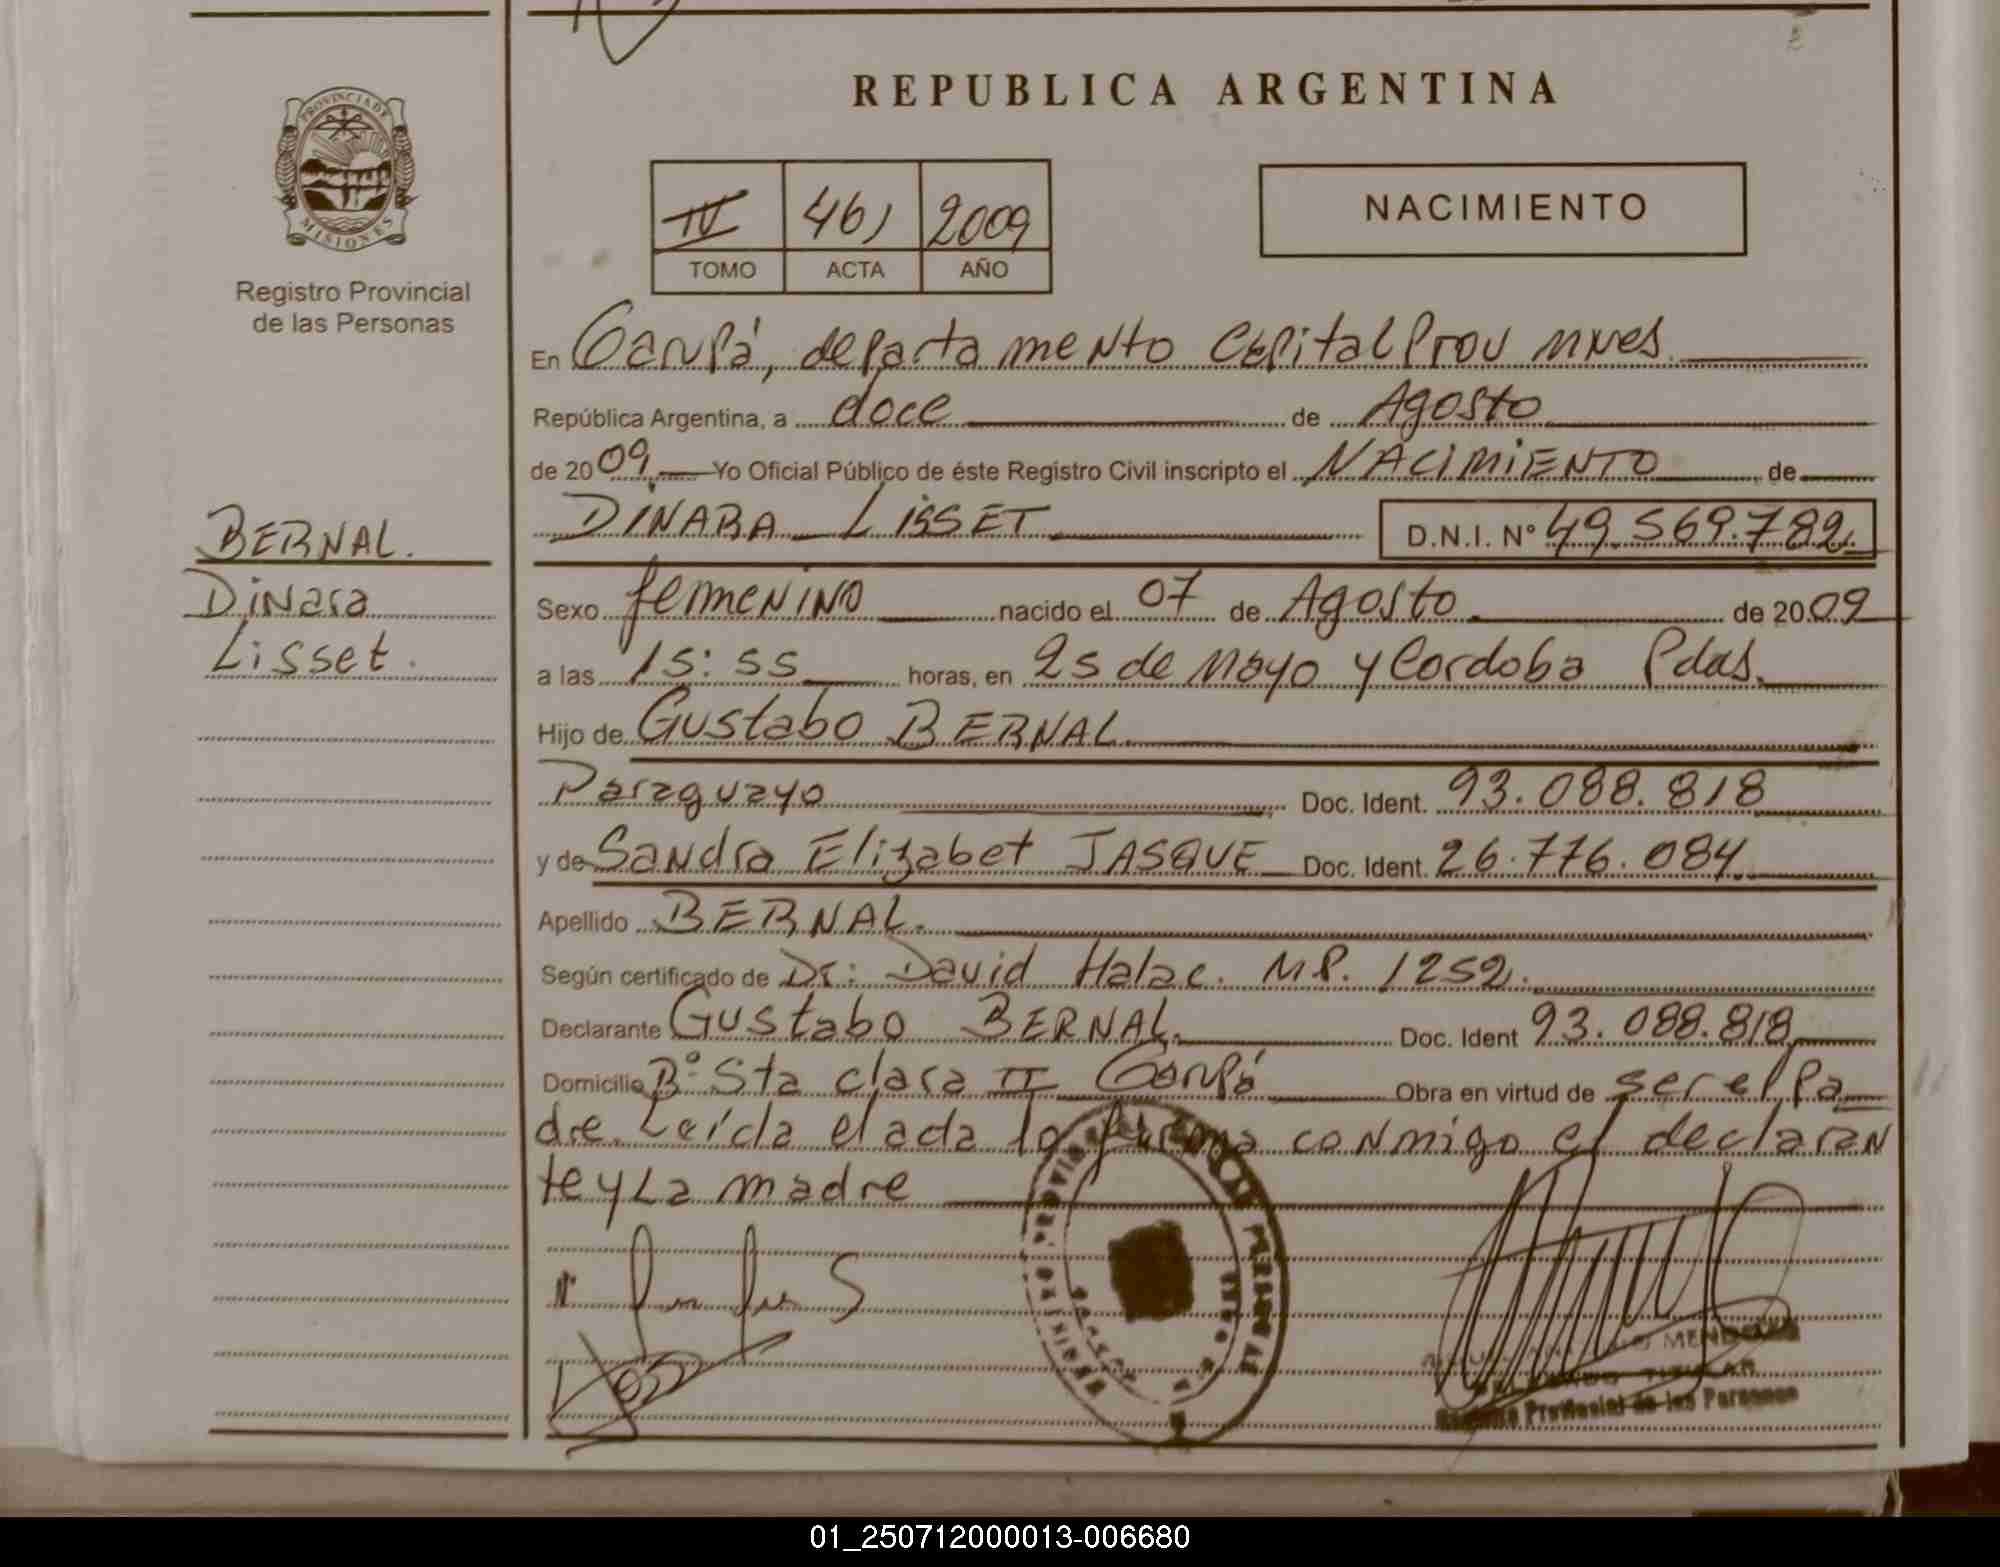 REPUBLICA ARGENTINA
PROVINCIA DE
MISIONES
Registro Provincial
de las Personas
IV 461 2009
TOMO ACTA AÑO
NACIMIENTO
En Garupá, departamento Capital Prov mnes.
República Argentina, a doce de Agosto
de 2009 Yo Oficial Público de éste Registro Civil inscripto el NACIMIENTO de
DINARA LISSET D.N.I. Nº 49.569.782
BERNAL.
Dinara
Lisset.
Sexo femenino nacido el 07 de Agosto de 2009
a las 15:55 horas, en 25 de mayo y Cordoba Pdas.
Hijo de Gustabo BERNAL
Paraguayo Doc. Ident. 93.088.818
y de Sandra Elizabet JASQUE Doc. Ident. 26.776.084
Apellido BERNAL.
Según certificado de Dr: David Halac. M.P. 1252.
Declarante Gustabo BERNAL. Doc. Ident 93.088.818
Domicilio Bº Sta clara II Garupá Obra en virtud de ser el Pa
dre. Leída el acta la firma conmigo el declaran
te y La madre
TITULAR
Provincial de las Personas
01_250712000013-006680